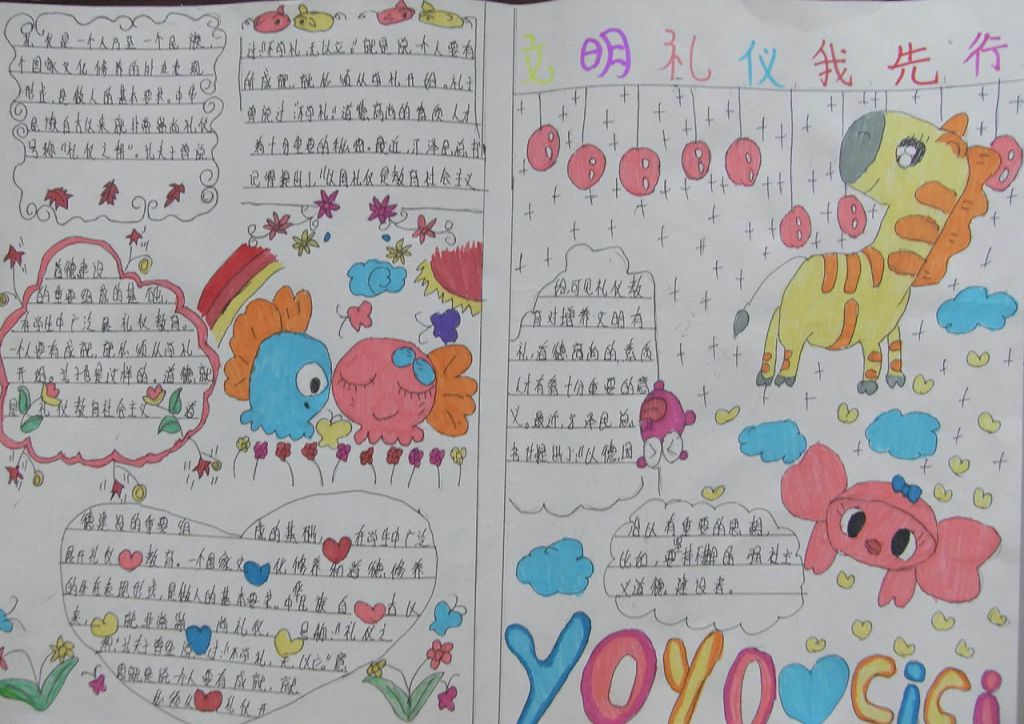 礼仪是一个人乃至一个民族、
个国家文化修养的外在表现
形式,是做人的基本要求。中华
民族自古以来就非常崇尚礼仪
号称“礼仪之邦”。孔夫子曾说
过“不学礼,无以立”就是说一个人要有
所成就,就必须从学礼开始。孔子
曾说过“不学礼”道德高尚的高质人才
有十分重要的 最近,江泽民总书
记曾提出了“以 礼仪是教育社会主义
道德建设
的重要组成的基础,
在学生中广泛 展礼仪教育。
一人要有成就,就必须从学礼
开始。孔子也是这样的。道德就
是 礼仪教育社会主义 道
德建设的重要组 成的基础。 在学生中广泛
展开礼仪 教育。一个国家文 化修养和道德修养
的外在表现形式,是做人的基本要求。中华民族自 古以
来 就非常崇 尚礼仪, 号称“礼仪之
邦”孔夫子曾经说 过:“不学礼,无以立。”意
思就是说一个人要有成就,就
必须从 礼仪开
文明礼仪我先行
的可见礼仪教
育对培养文明有
礼,道德高尚的高质
人才有着十分重要的意
义。最近,江泽民总
书记提出了“以德国
治以有重要的思想,
比如,要 的 社会主
义道德建设来。
YOYO CiCi